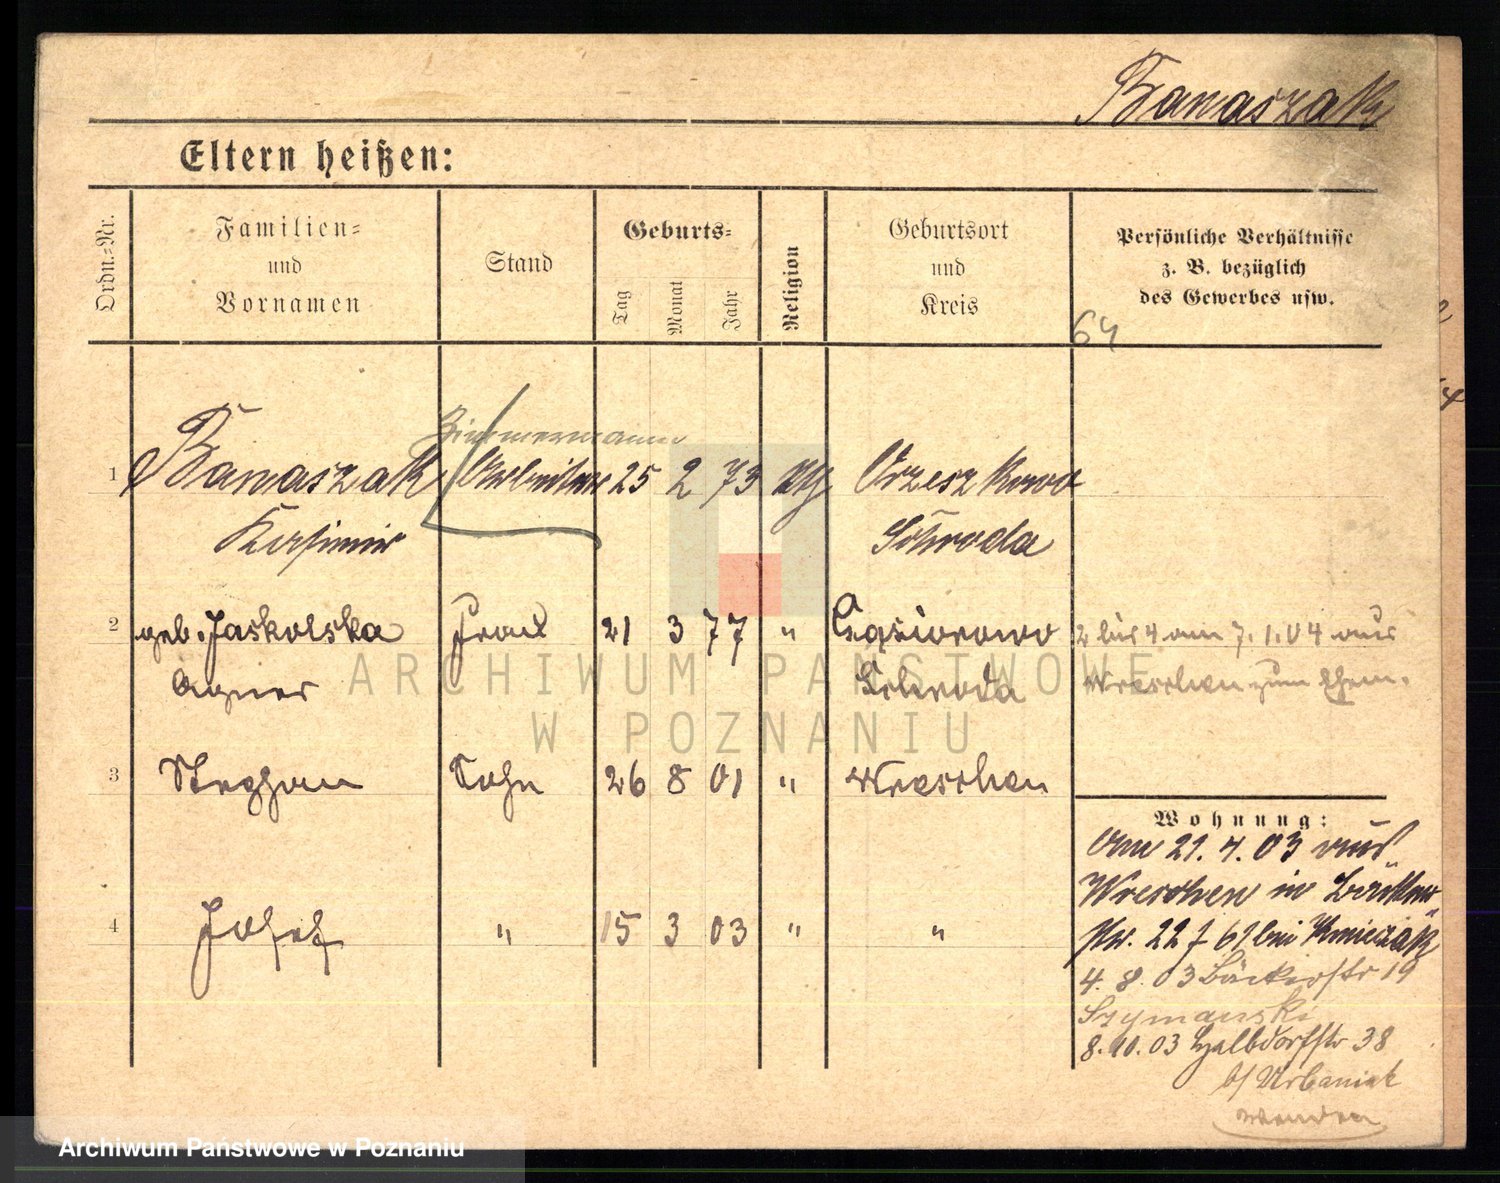 Banaszak
Eltern heißen:
Ordn.-Nr.
Familien- und Vornamen
Stand
Geburts-
Tag
Monat
Jahr
Religion
Geburtsort und Kreis
Persönliche Verhältnisse z. B. bezüglich des Gewerbes usw.
64
Zimmermann
1 Banaszak Arbeiter 25 2 73 kth Orzeszkowo
Kasimir Schroda
2 geb. Jaskolska Frau 21 3 77 " 2 bis 4 am 7.1.04 aus
Agnes Schroda Wreschen zum Ehem.
3 Stephan Sohn 26 8 01 " Wreschen
Wohnung:
Am 21.4.03 aus
Wreschen in Bäcker
4 Josef " 15 3 03 " " str. 22 f 61 bei Kmieczak
4. 8. 03 Bäckerstr 19
Szymanski
8. 10. 03 Halbdorfstr 38
b/ Urbaniak
wenden
ARCHIWUM PAŃSTWOWE
W POZNANIU
Archiwum Państwowe w Poznaniu